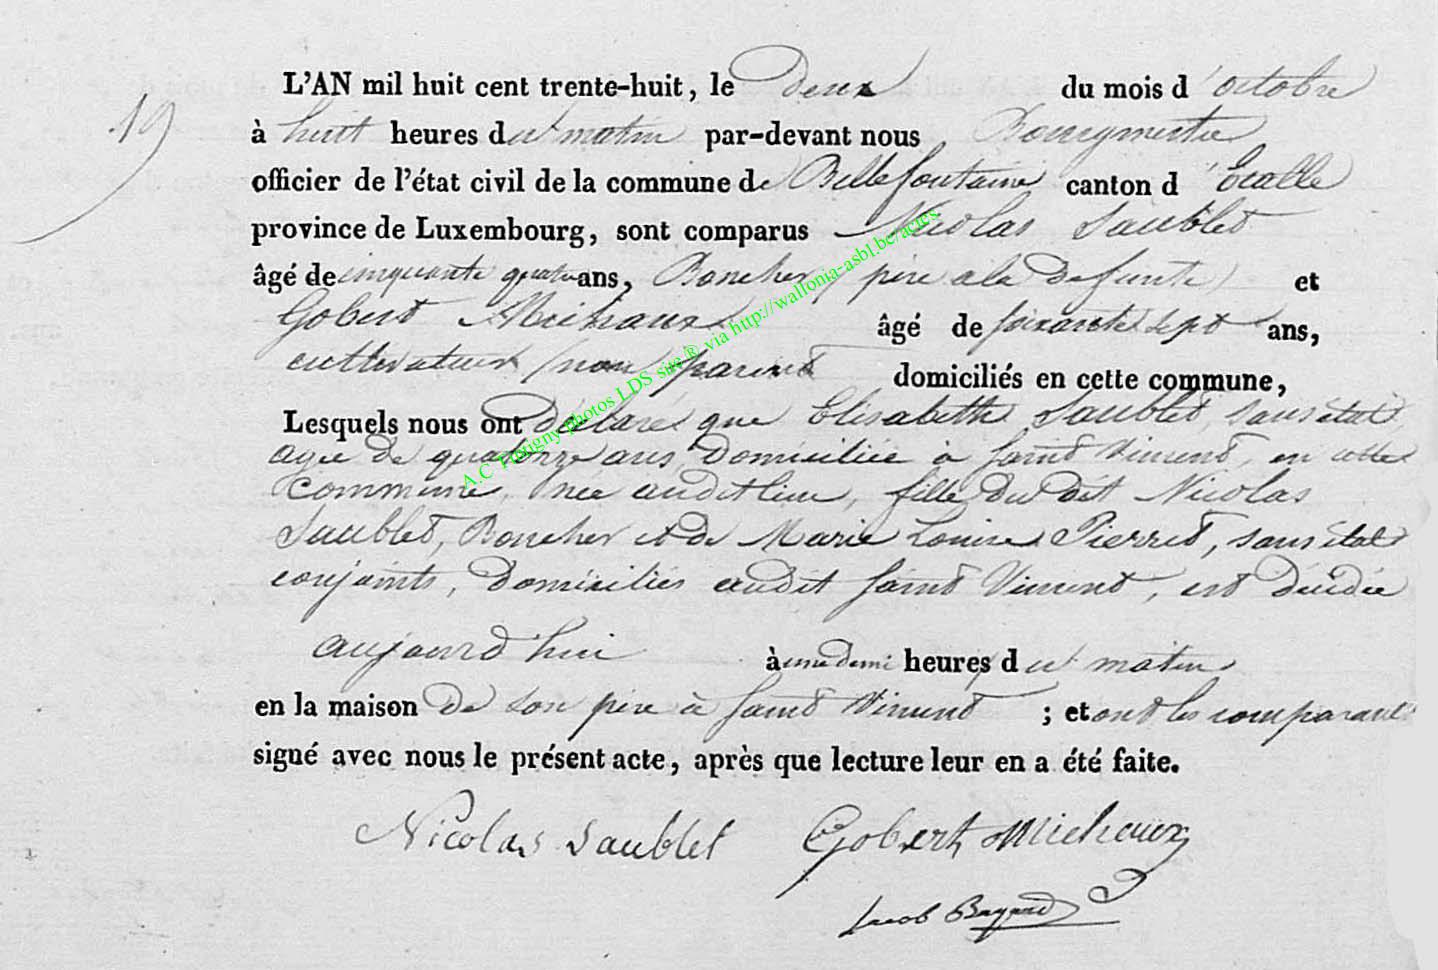 19
L'AN mil huit cent trente-huit, le deux du mois d'octobre
à huit heures du matin par-devant nous Bourgmestre
officier de l'état civil de la commune de Bellefontaine canton d'Etalle
province de Luxembourg, sont comparus Nicolas Saublet
âgé de cinquante quatre ans, Boucher, père à la défunte et
Gobert Michaux âgé de soixante sept ans,
cultivateur (non parent domiciliés en cette commune,
Lesquels nous ont déclaré que Elisabeth Saublet, sans état
agée de quatorze ans, domiciliée à Saint Vincent, en cette
commune, née audit lieu, fille du dit Nicolas
Saublet, Boucher et de Marie Louise Pierret, sans état
conjoints, domiciliés audit Saint Vincent, est décédée
aujourd'hui à une demi heures du matin
en la maison de son père à Saint Vincent ; et ont les comparants
signé avec nous le présent acte, après que lecture leur en a été faite.
Nicolas Saublet Gobert Michaux
Jacob Bayard
A.C Tintigny photos LDS site ® via http://wallonia-asbl.be/actes.